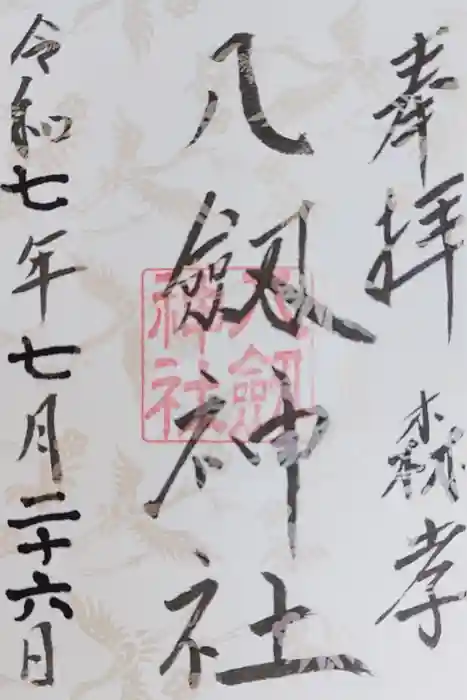 奉拝 森孝
八劔神社
八劔神社
令和七年七月二十六日